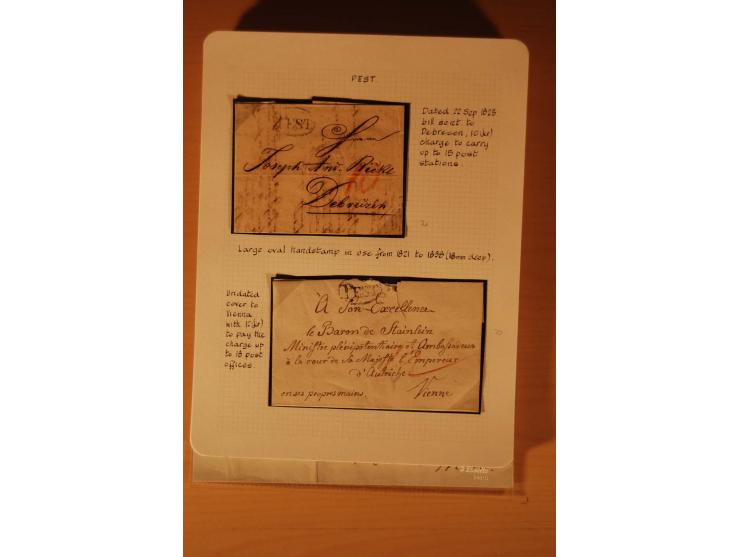 PEST.
PEST
Joseph Ant. Rickl
Debreizin
Dated 22 Sep 1825
bill sent to
Debrecen, 10(kr)
charge to carry
up to 15 post
stations.
Large oval handstamp in use from 1821 to 1838 (18mm deep).
Undated
cover to
Vienna
with
to pay the
charge up
to 18 post
offices.
PEST
A Son Excellence
le Baron de Stainlein
Ministre plénipotentiaire et Ambassadeur
à la cour de Sa Majesté l'Empereur
d'Autriche
en ses propres mains. Vienne